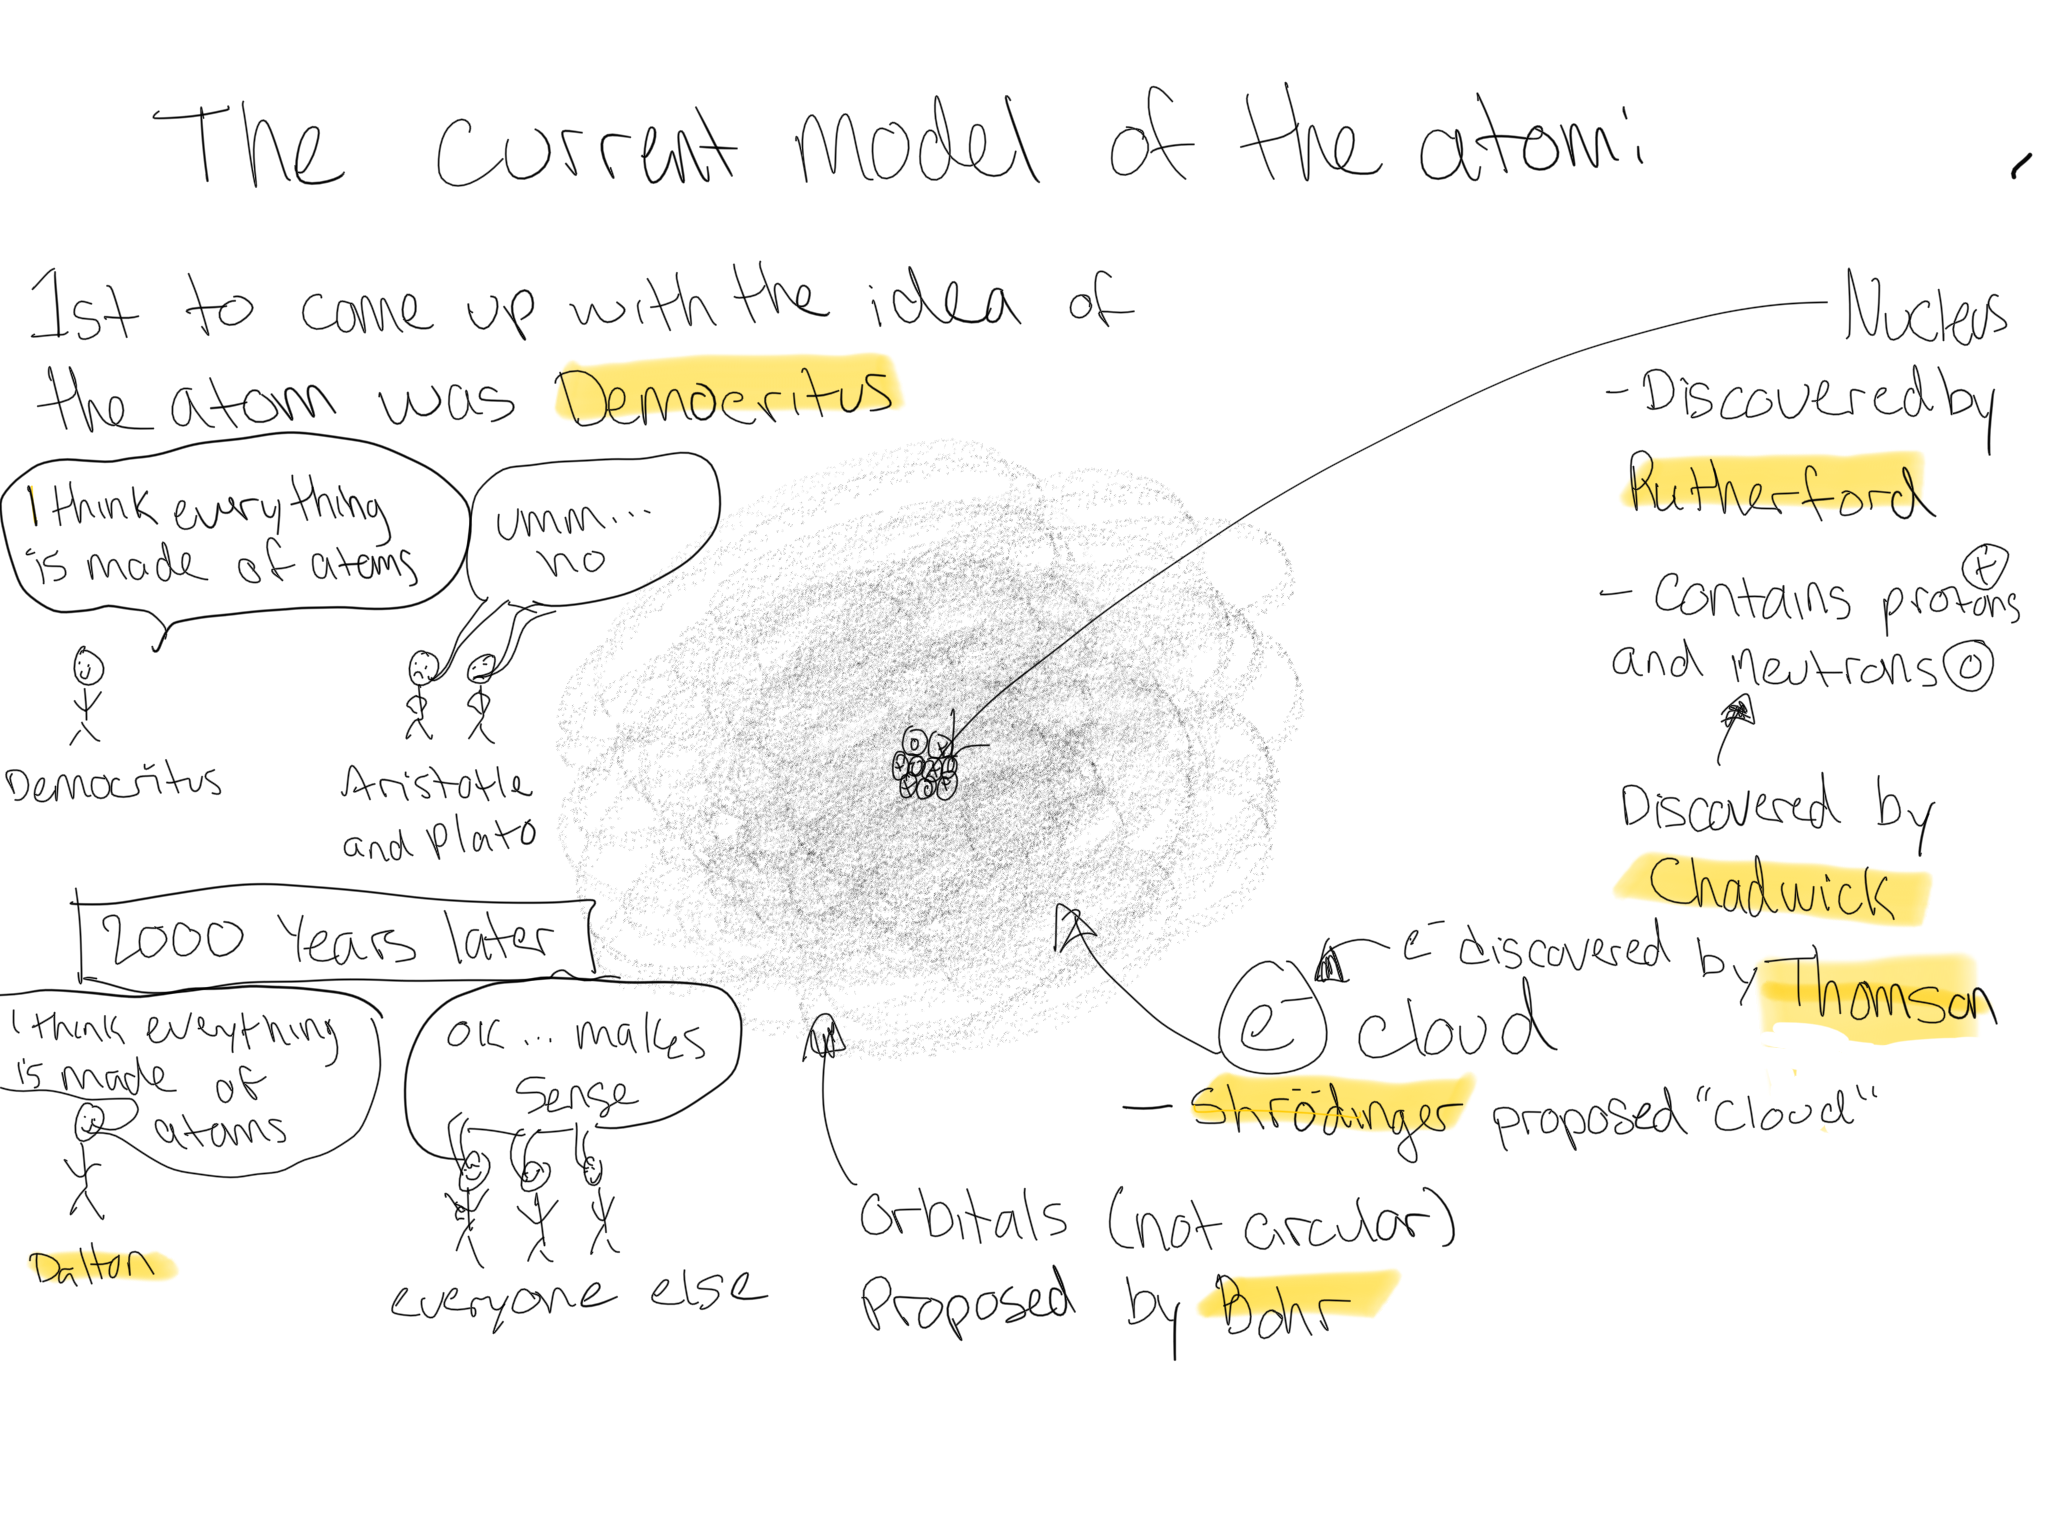 The current model of the atom:
1st to come up with the idea of
the atom was Democritus
I think everything
is made of atoms
umm...
no
Democritus
Aristotle
and Plato
2000 Years later
I think everything
is made of
atoms
OK... makes
sense
Dalton
everyone else
Nucleus
- Discovered by
Rutherford
- contains protons
+
and neutrons o
Discovered by
Chadwick
e- discovered by Thomson
e- cloud
- Shrödinger proposed "cloud"
orbitals (not circular)
Proposed by Bohr